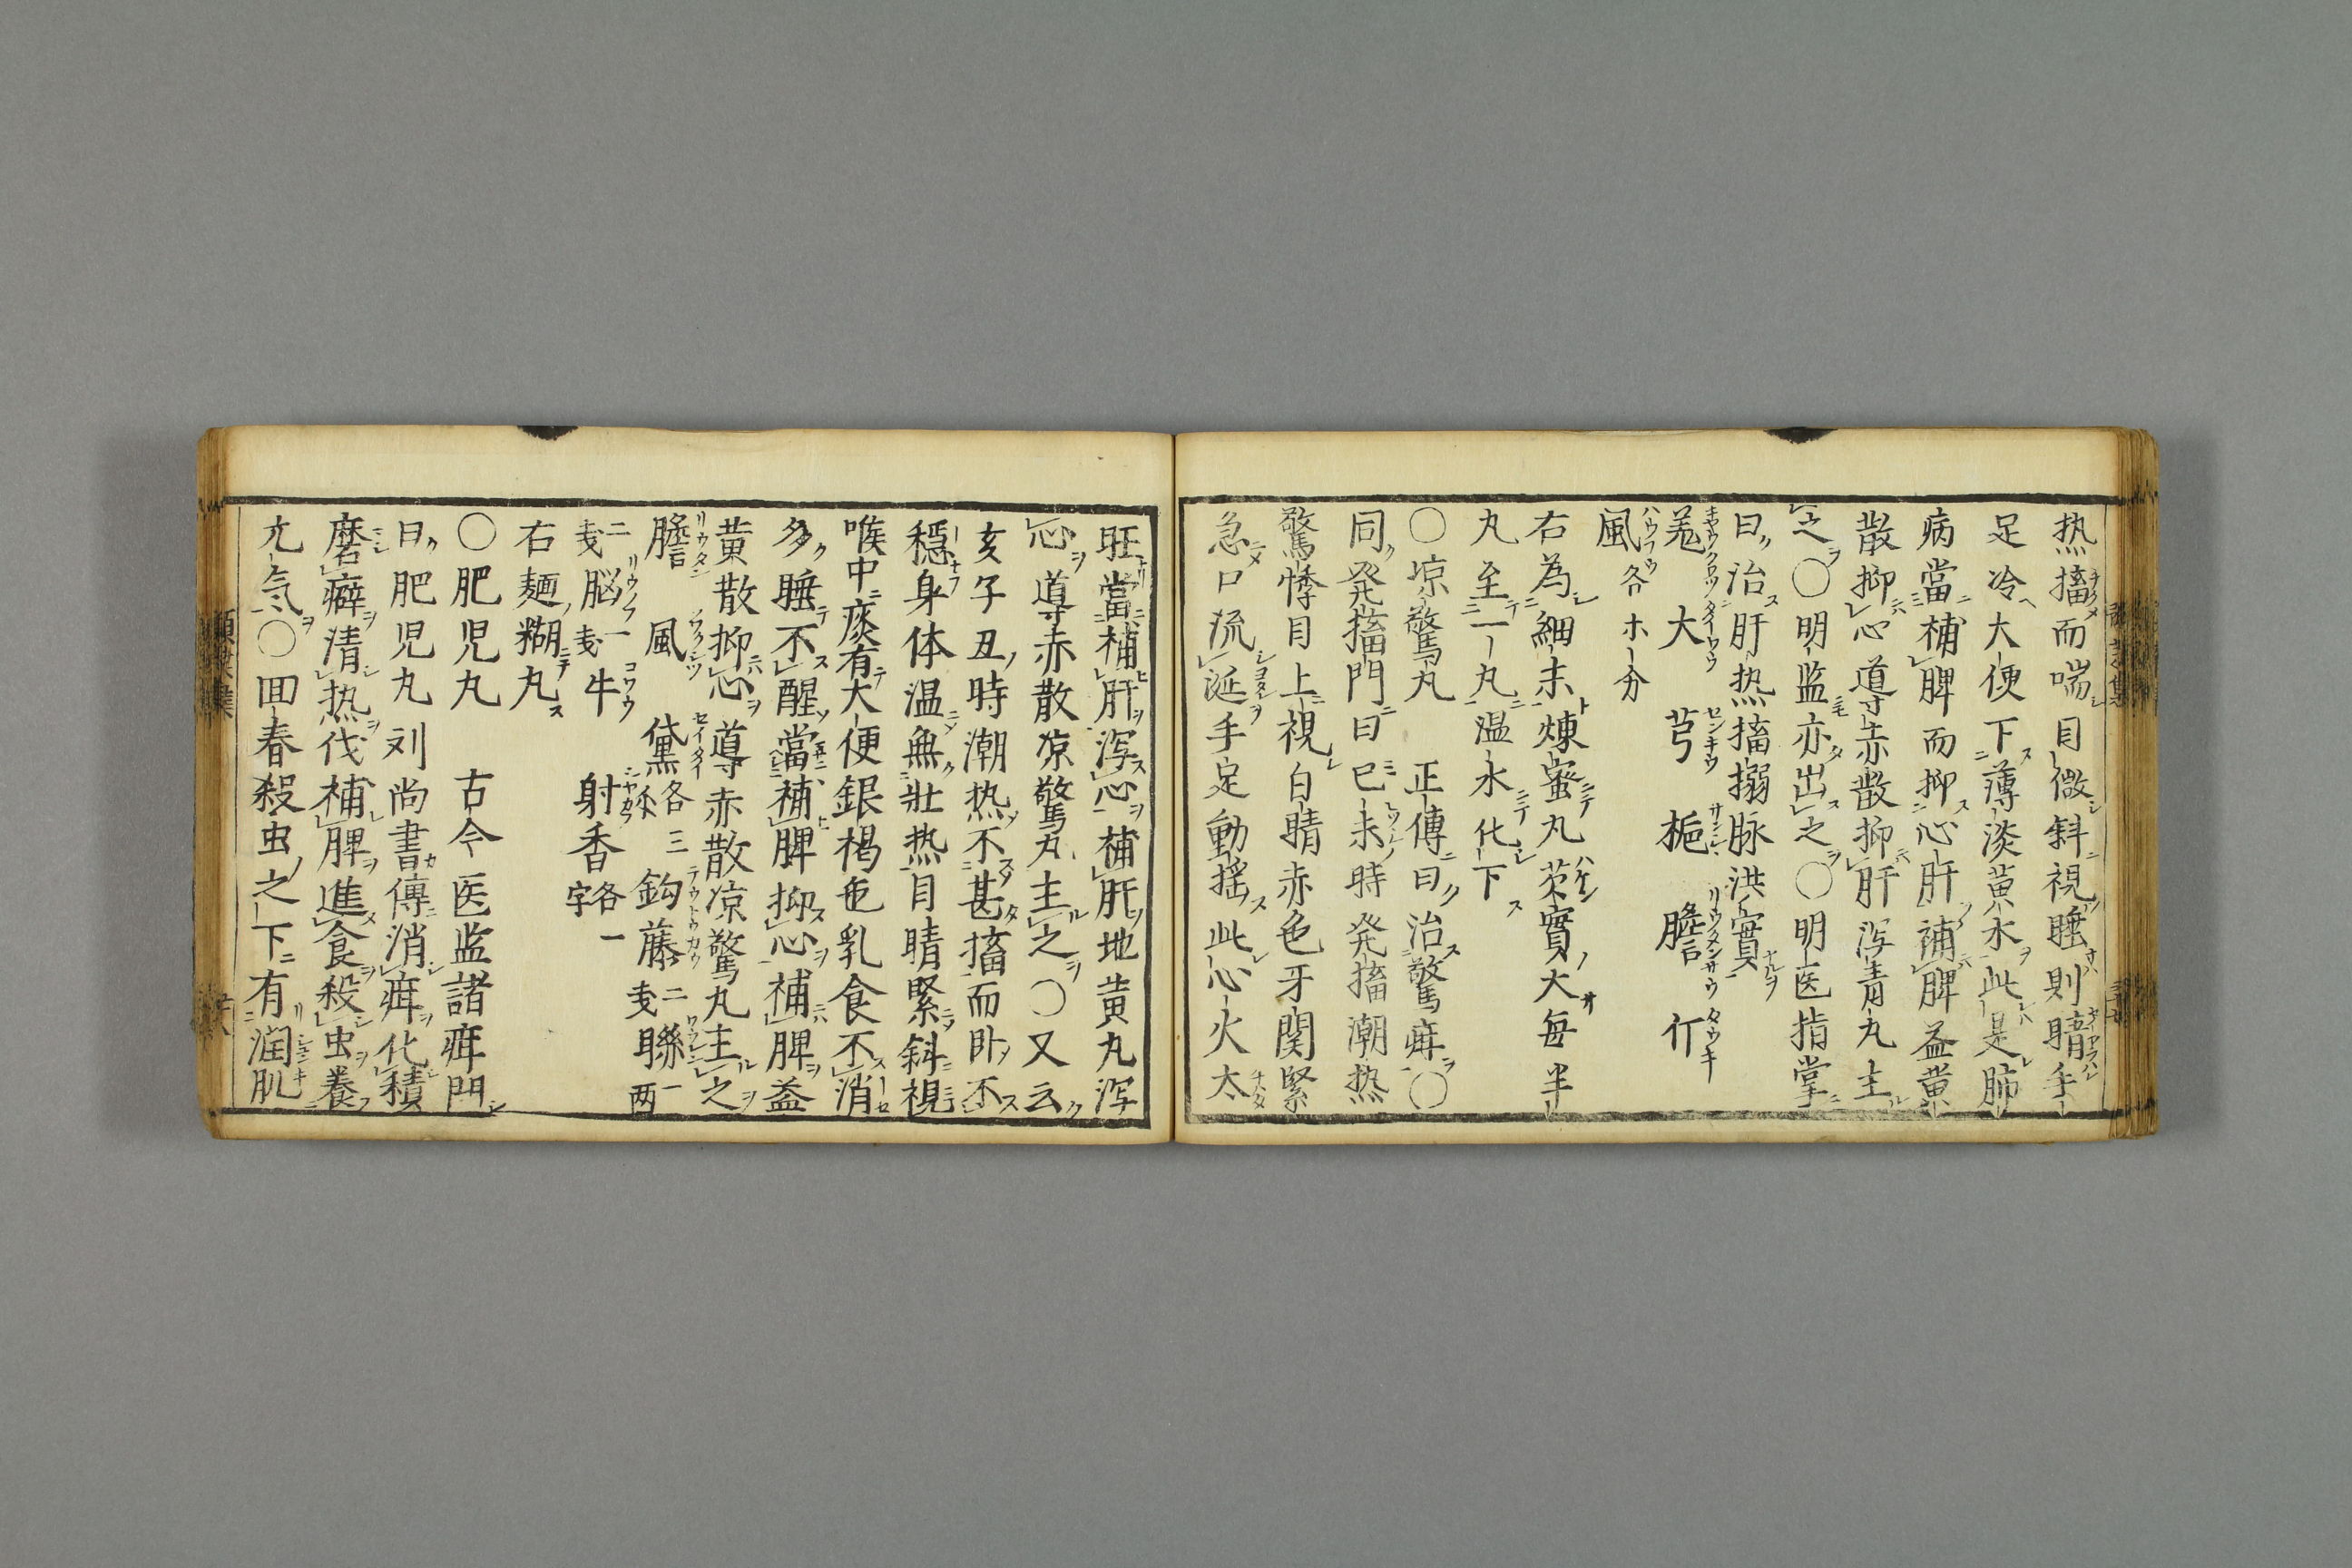 热搐而喘目微斜視睡則睛手
足冷大便下薄淡黄水此是肺
病當補脾而抑心肝補脾益黄
散抑心導赤散抑肝泻青丸主
之〇明监亦出之〇明医指掌
曰治肝热搐搦脉洪實
羗 大 芎 栀 膽 竹
風各ホ分
右為細末煉蜜丸芡實大每半
丸至一丸温水化下
〇凉驚丸 正傳曰治驚疳〇
同発搐門曰巳未時発搐潮热
驚悸目上視白睛赤色牙関緊
急口流涎手足動揺此心火太
旺當補肝泻心補肝地黄丸泻
心導赤散凉驚丸主之〇又云
亥子丑時潮热不甚搐而卧不
穏身体温無壮热目睛緊斜視
喉中痰有大便銀褐色乳食不消
多睡不醒當補脾抑心補脾益
黄散抑心導赤散凉驚丸主之
膽 風 黛各三 鈎藤 二 聯一両
二 脳一 牛 射香各一字
右麺糊丸
〇肥児丸 古今医监諸疳門
曰肥児丸刘尚書傳消疳化積
磨癖清热伐補脾進食殺虫養
元気〇回春殺虫之下有潤肌